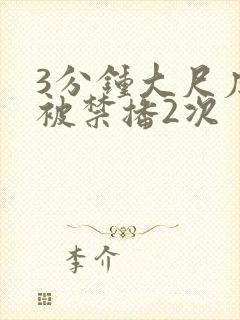 3分鍾大尺度
被禁播2次
李介